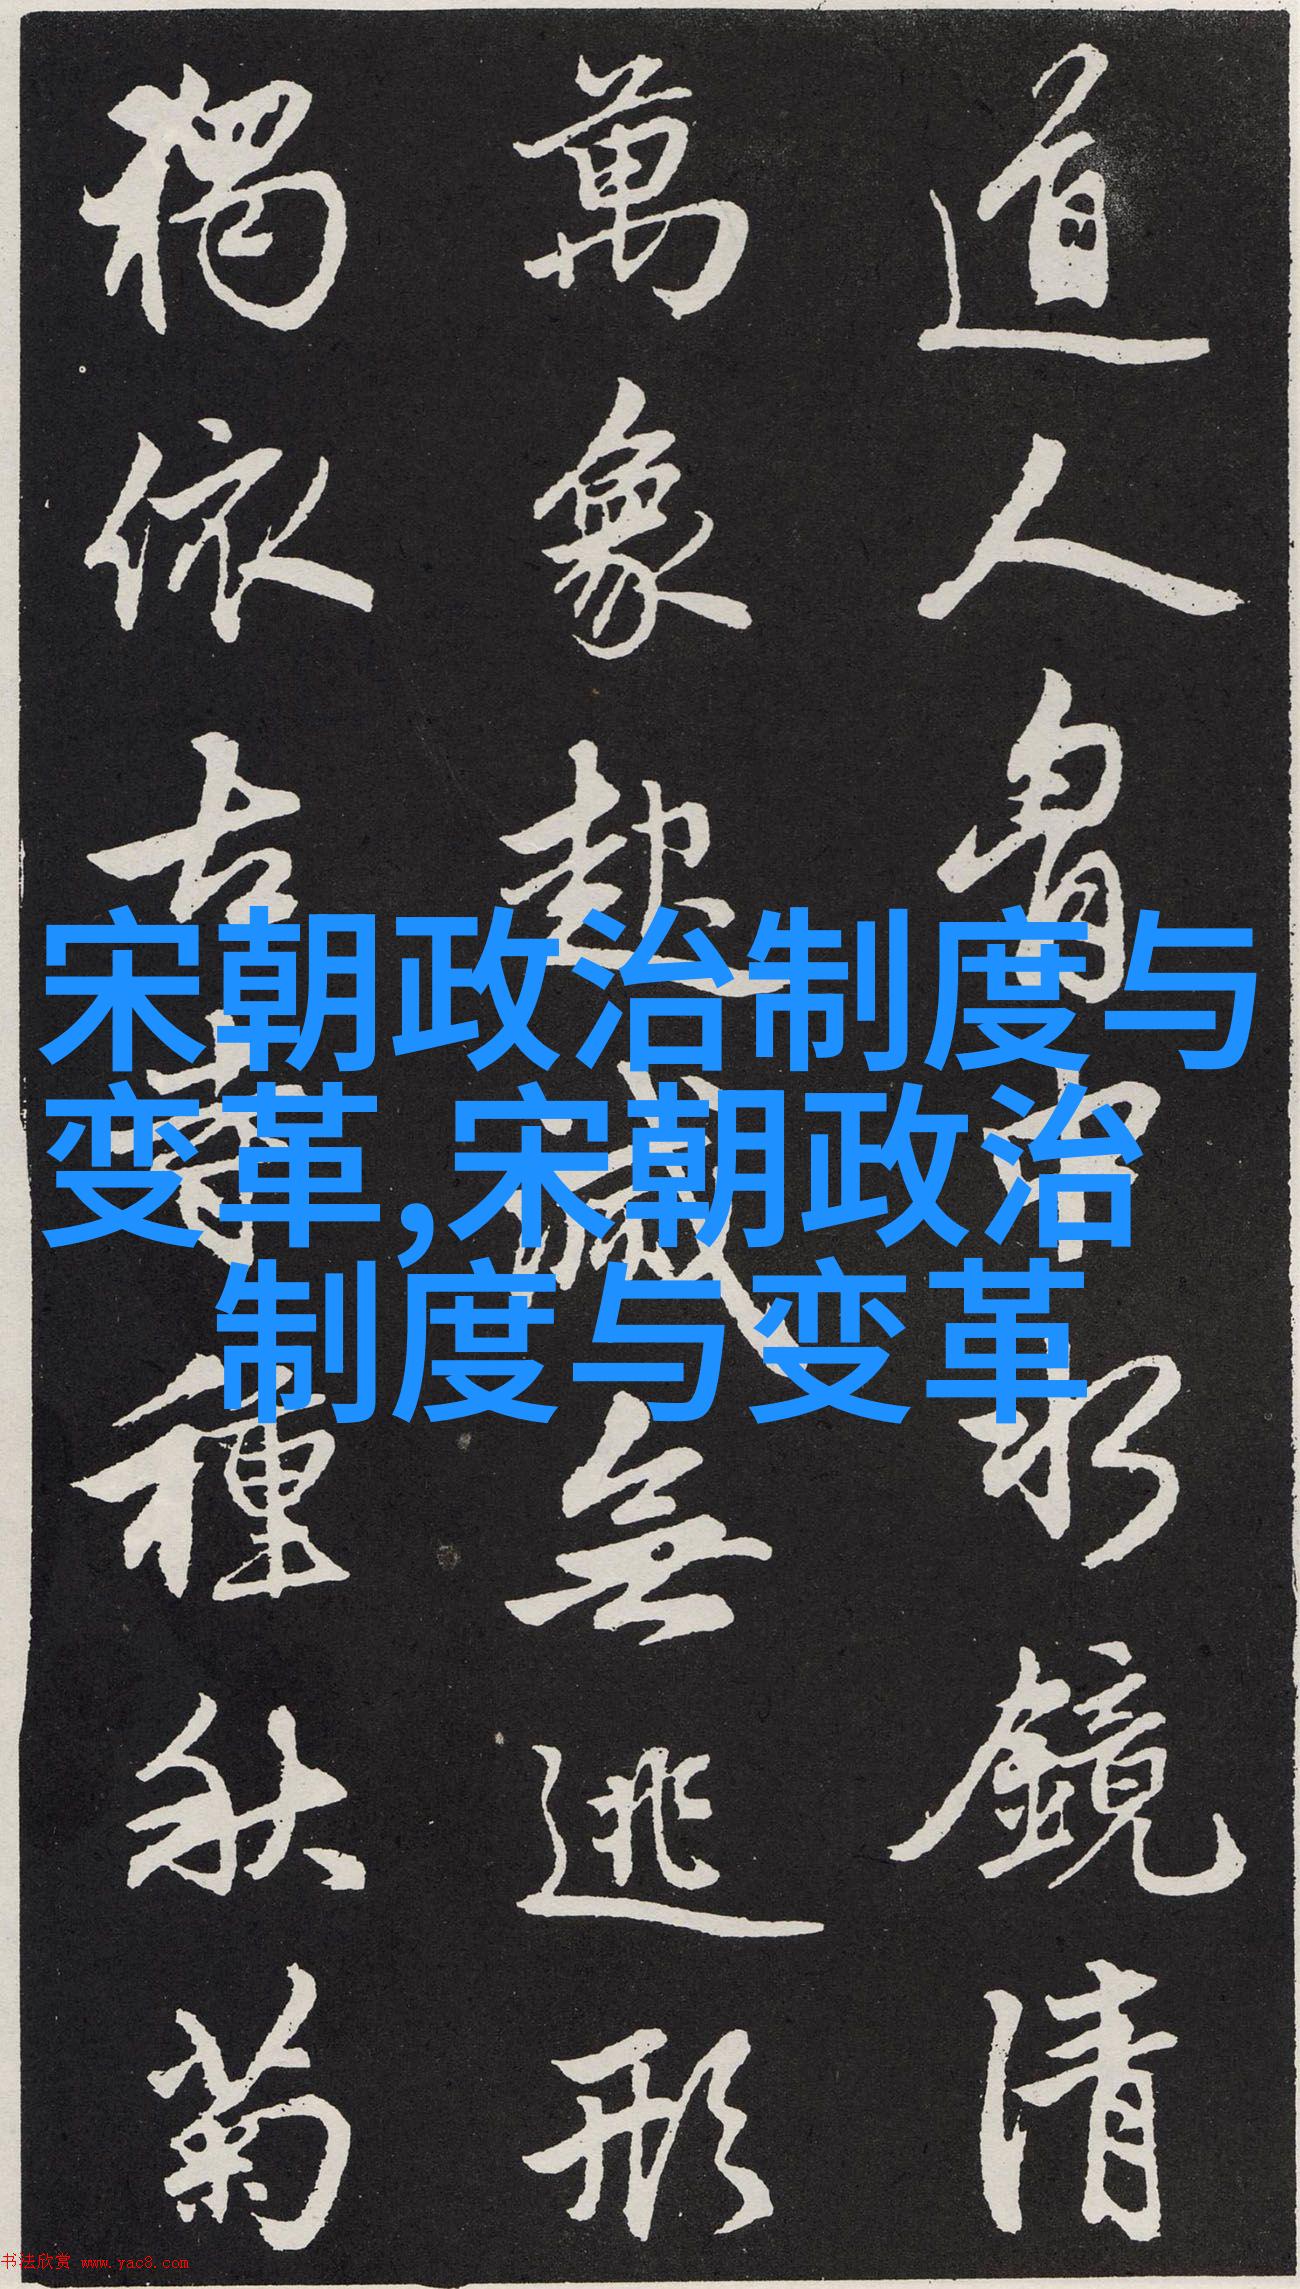 道人胸中水鏡清
萬象起滅無逃形
獨依古寺種秋菊
宋朝政治制度与
变革,宋朝政治
制度与变革
书法欣赏 www.yac8.com